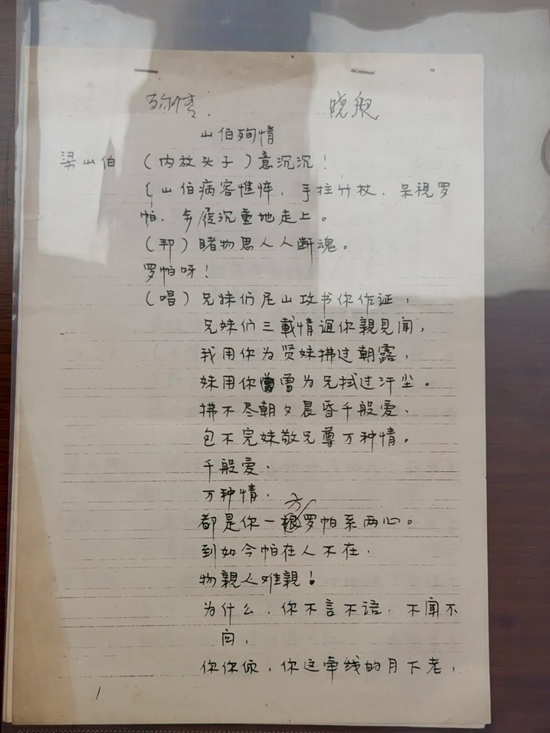 晓艇
山伯殉情
梁山伯 (内放头子) 意沉沉!
(山伯病容憔悴、手拄竹杖、呆視罗
帕、步履沉重地走上。
(邦) 睹物思人人断魂。
罗帕呀!
(唱) 兄妹们尼山攻书你作证,
兄妹们三載情谊你親見闻,
我用你为贤妹拂过朝露,
妹用你曾为兄拭过汗尘。
拂不尽朝夕晨昏千般爱、
包不完妹敬兄尊万种情。
千般爱、
万种情、
都是你一方罗帕系两心。
到如今帕在人不在、
物親人难親!
为什么、你不言不语、不闻不
问,
你你你、你这牵线的月下老,
1